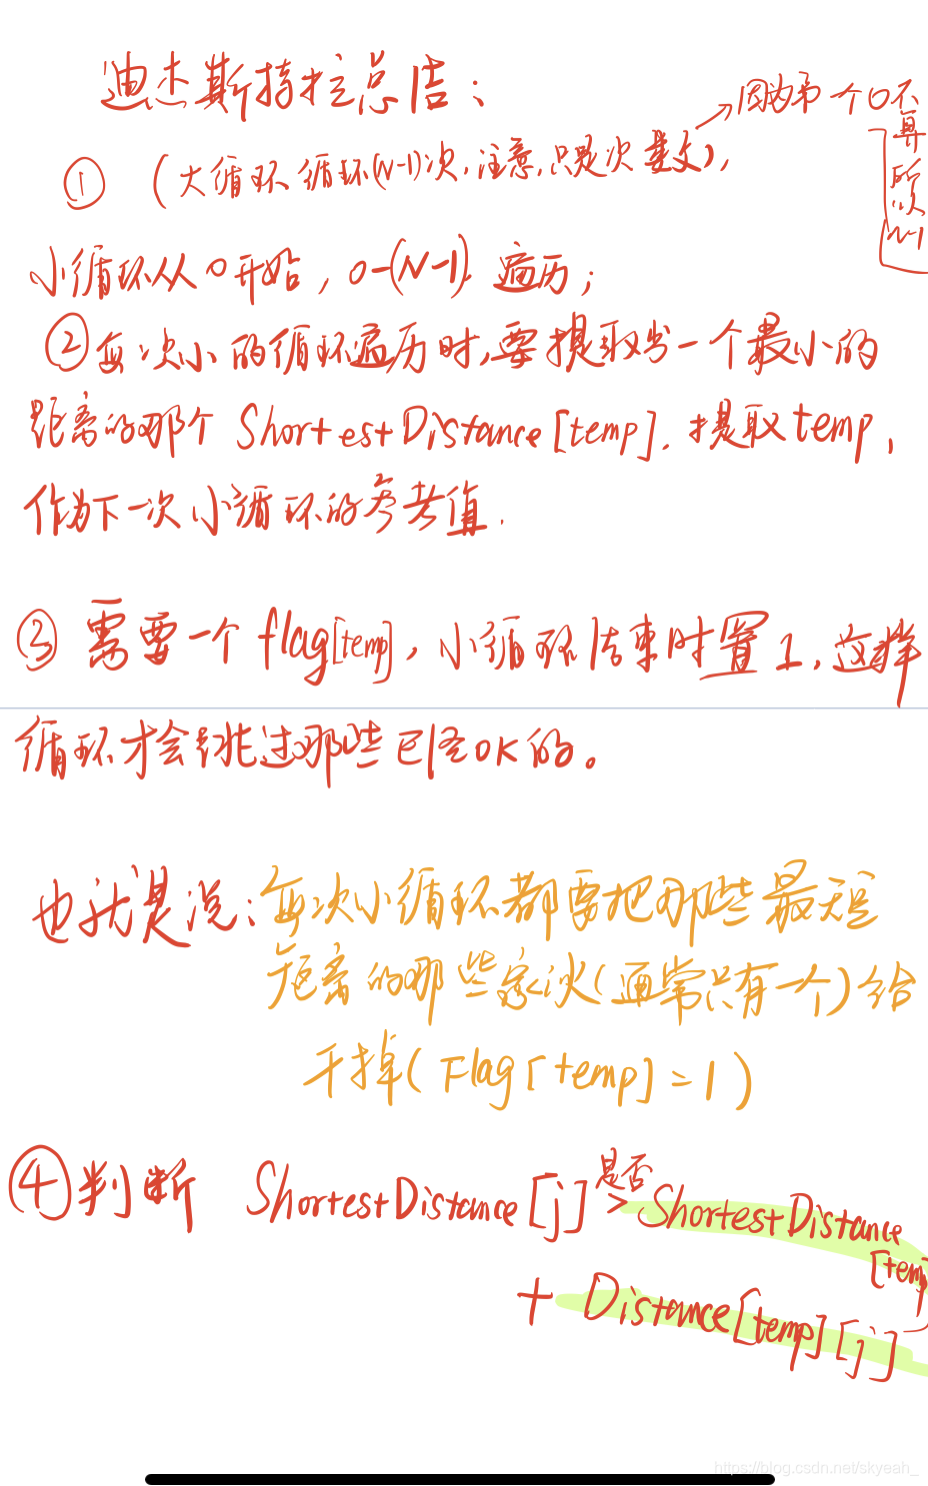 迪杰斯特拉总结：
因为第一个0不
算
所
以
N-1
① （大循环循环(N-1)次，注意，只是次数），
小循环从0开始，0-(N-1)遍历；
②每次小的循环遍历时，要提取出一个最小的
距离的那个ShortestDistance[temp]. 提取temp，
作为下一次小循环的参考值.
③需要一个flag[temp]，小循环结束时置1，这样
循环才会跳过那些已经OK的。
也就是说：每次小循环都要把那些最短
距离的那些家伙(通常只有一个)给
干掉(Flag[temp]=1)
④判断 ShortestDistance[j]是否>ShortestDistance
[temp]
+ Distance[temp][j]
https://blog.csdn.net/skyeah_